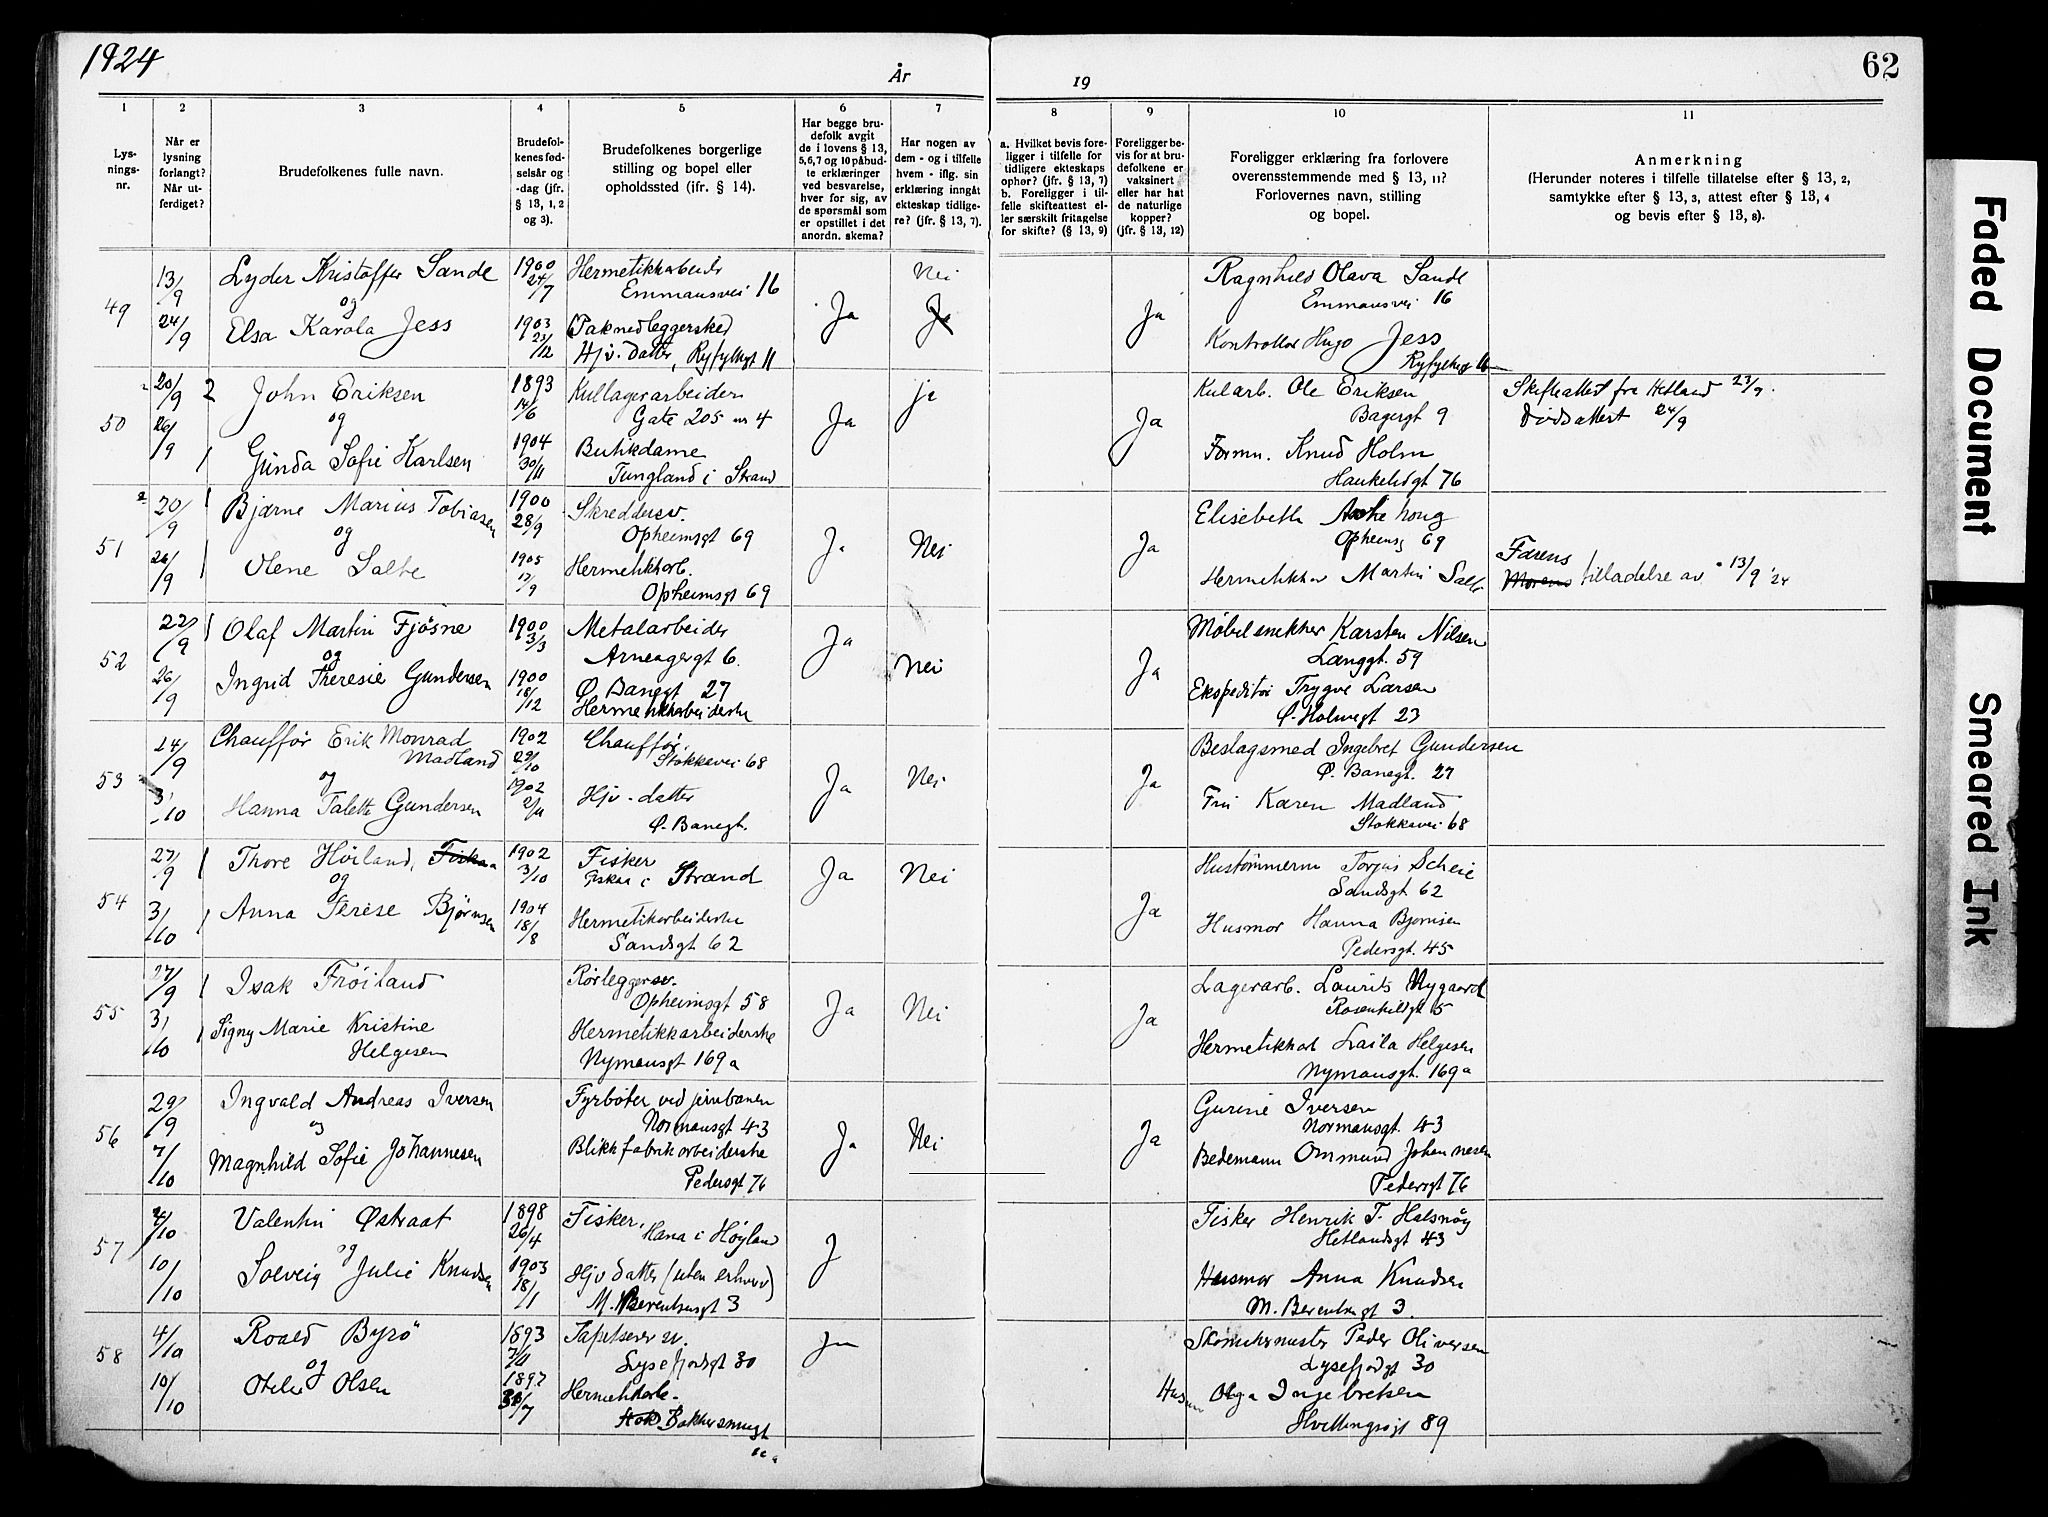 1924
År
19
62
1
2
3
4
5
6
7
8
9
10
11
Lys-
nings-
nr.
Når er
lysning
forlangt?
Når ut-
ferdiget?
Brudefolkenes fulle navn.
Brudefol-
kenes fød-
selsår og
-dag (jfr.
§ 13, 1, 2
og 3).
Brudefolkenes borgerlige
stilling og bopel eller
opholdssted (ifr. § 14).
Har begge bru-
defolk avgit
de i lovens § 13,
5,6,7 og 10 påbud-
te erklæringer
ved besvarelse,
hver for sig, av
de spørsmål som
er opstillet i det
anordn. skema?
Har nogen av
dem - og i tilfelle
hvem - iflg. sin
erklæring inngått
ekteskap tidlige-
re? (jfr. § 13, 7).
a. Hvilket bevis fore-
ligger i tilfelle for
tidligere ekteskaps
ophør? (jfr. § 13, 7)
b. Foreligger i til-
felle skifteattest el-
ler særskilt fritagelse
for skifte? (§ 13, 9)
Foreligger be-
vis for at bru-
defolkene er
vaksinert
eller har hat
de naturlige
kopper?
(jfr. § 13, 12)
Foreligger erklæring fra forlovere
overensstemmende med § 13, 11?
Forlovernes navn, stilling
og bopel.
Anmerkning
(Herunder noteres i tilfelle tillatelse efter § 13, 2,
samtykke efter § 13, 3, attest efter § 13, 4
og bevis efter § 13, 8).
49
13/9
24/9
Lyder Kristoffer Sande
og
Elsa Karola Jess
1900
24/7
1903
23/12
Hermetikkarbeider
Emmausvei 16
Paknedleggerske
Hjv. datter, Ryfylkegt 11
Ja
Nei
Ja
Ja
Ragnhild Olava Sande
Emmausvei 16
Kontrollør Hugo Jess
Ryfylkegt 11
50
20/9 2
26/9
John Eriksen
og
Gunda Sofie Karlsen
1893
14/6
1904
30/11
Kullagerarbeider
Gate 205 nr 4
Butikdame
Tungland i Strand
Ja
ja
Ja
Kularb. Ole Eriksen
Bagergt 9
Formn. Knud Holm
Haukeligt 76
Skifteattest fra Hetland 23/9.
Dødsattest 24/9
51
20/9
26/9
Bjarne Marius Tobiasen
og
Olene Salte
1900
28/9
1905
17/9
Skreddersv.
Opheimsgt 69
Hermetikkarb.
Opheimsgt 69
Ja
Nei
Ja
Elisebeth
Opheimsg 69
Hermetikkar Martin Salte
Farens
Morens tilladelse av 13/9 '24
52
22/9
26/9
Olaf Martin Fjøsne
og
Ingrid Theresie Gundersen
1900
3/3
1900
18/12
Metalarbeider
Arneagergt 6.
Ø. Banegt 27
Hermetikkarbeiderske
Ja
Nei
Ja
Møbelsnekker Karsten Nilsen
Langgt. 59
Ekspeditør Trygve Larsen
Ø. Holmegt 23
53
24/9
3/10
Chauffør Erik Monrad
Madland
og
Hanna Talette Gundersen
1902
29/10
1902
2/11
Chauffør.
Stokkavei 68
Hjv. datter
Ø. Banegt.
Ja
Nei
Ja
Beslagsmed Ingebret Gundersen
Ø. Banegt. 27
Fru Karen Madland
Stokkavei 68
54
27/9
3/10
Thore Høiland, Fiskaa
og
Anna Terese Bjørnsen
1902
3/10
1904
18/8
Fisker
Fiskaa i Strand
Hermetikarbeiderske
Sandsgt 62
Ja
Nei
Ja
Hustømmerm Torjus Scheie
Sandsgt 62
Husmor Hanna Bjørnsen
Pedersgt. 45
55
27/9
3/10
Isak Frøiland
Signy Marie Kristine
Helgesen
Rørleggersv.
Opheimsgt 58
Hermetikkarbeiderske
Nymansgt 169a
Ja
Nei
Ja
Lagerarb. Laurits Nygaard
Rosenkildgt 5
Hermetikkarb Laila Helgesen
Nymansgt. 169a
56
29/9
7/10
Ingvald Andreas Iversen
og
Magnhild Sofie Johannesen
Fyrbøter ved jernbanen
Normansgt 43
Blikkfabrikarbeiderske
Pedersgt 76
Ja
Nei
Ja
Gurine Iversen
Normansgt. 43
Bedemann Ommund Johannesen
Pedersgt 76
57
4/10
10/10
Valentin Østraat
og
Solveig Julie Knudsen
1898
26/4
1903
18/1
Fisker,
Hana i Høyland
Hjv datter (uten erhverv)
M. Berentsensgt 3
J
Fisker Henrik T. Halsnøy
Hetlandsgt 43
Husmor Anna Knudsen
M. Berentsengt 3
58
4/10
10/10
Roald Byrø
og
Otelie Olsen
1893
7/11
1897
/7
Tapetserer sv.
Lysefjordsgt 30
Hermetikkarb.
Bakkersmugt
Ja
Skomakermester Peder Oliversen
Lysefjordgt 30
Husm Olga Ingebretsen
Hvittingsøgt 89
Faded Document
Smeared Ink